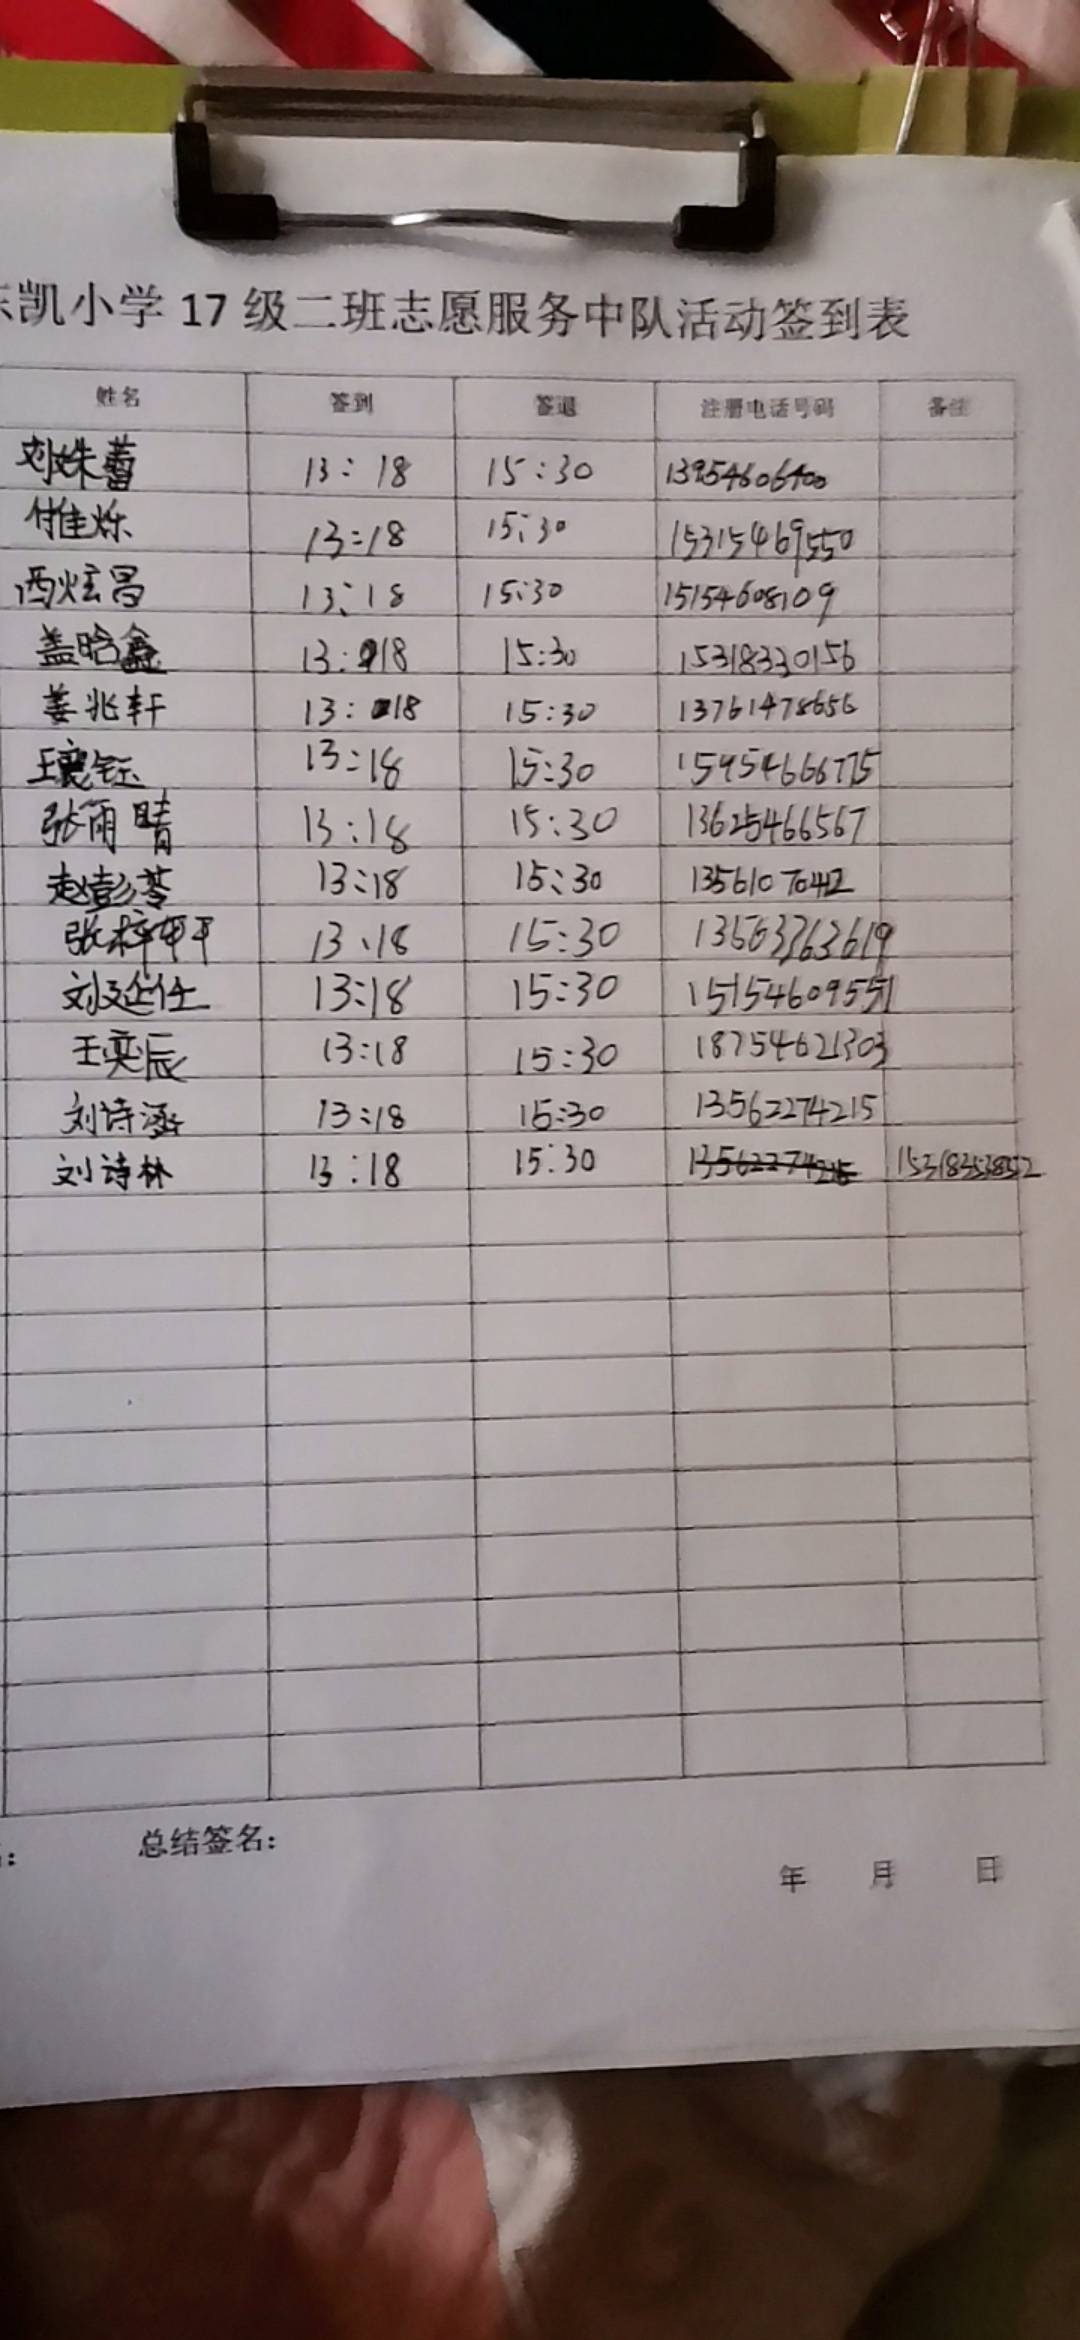 东凯小学 17 级二班志愿服务中队活动签到表
姓名 签到 签退 注册电话号码 备注
刘姝蕾 13:18 15:30 13954606400
付佳烁 13:18 15:30 15315469550
西炫昌 13:18 15:30 15154608109
盖晗鑫 13:18 15:30 15318330156
姜兆轩 13:18 15:30 13761478656
王襄钰 13:18 15:30 15954666775
张雨晴 13:18 15:30 13625466567
赵彭苓 13:18 15:30 1356107042
张梓 13:18 15:30 13563363619
刘延任 13:18 15:30 15154609551
王奕辰 13:18 15:30 18754621303
刘诗涵 13:18 15:30 13562274215
刘诗林 13:18 15:30 13562274215 15318353852
: 总结签名:
年 月 日